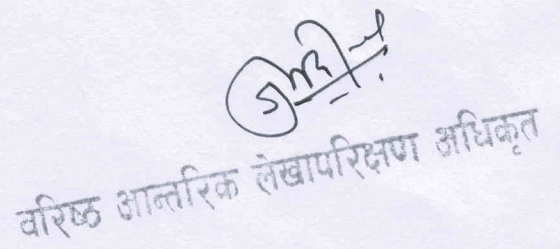 वरिष्ठ आन्तरिक लेखापरिक्षण अधिकृत